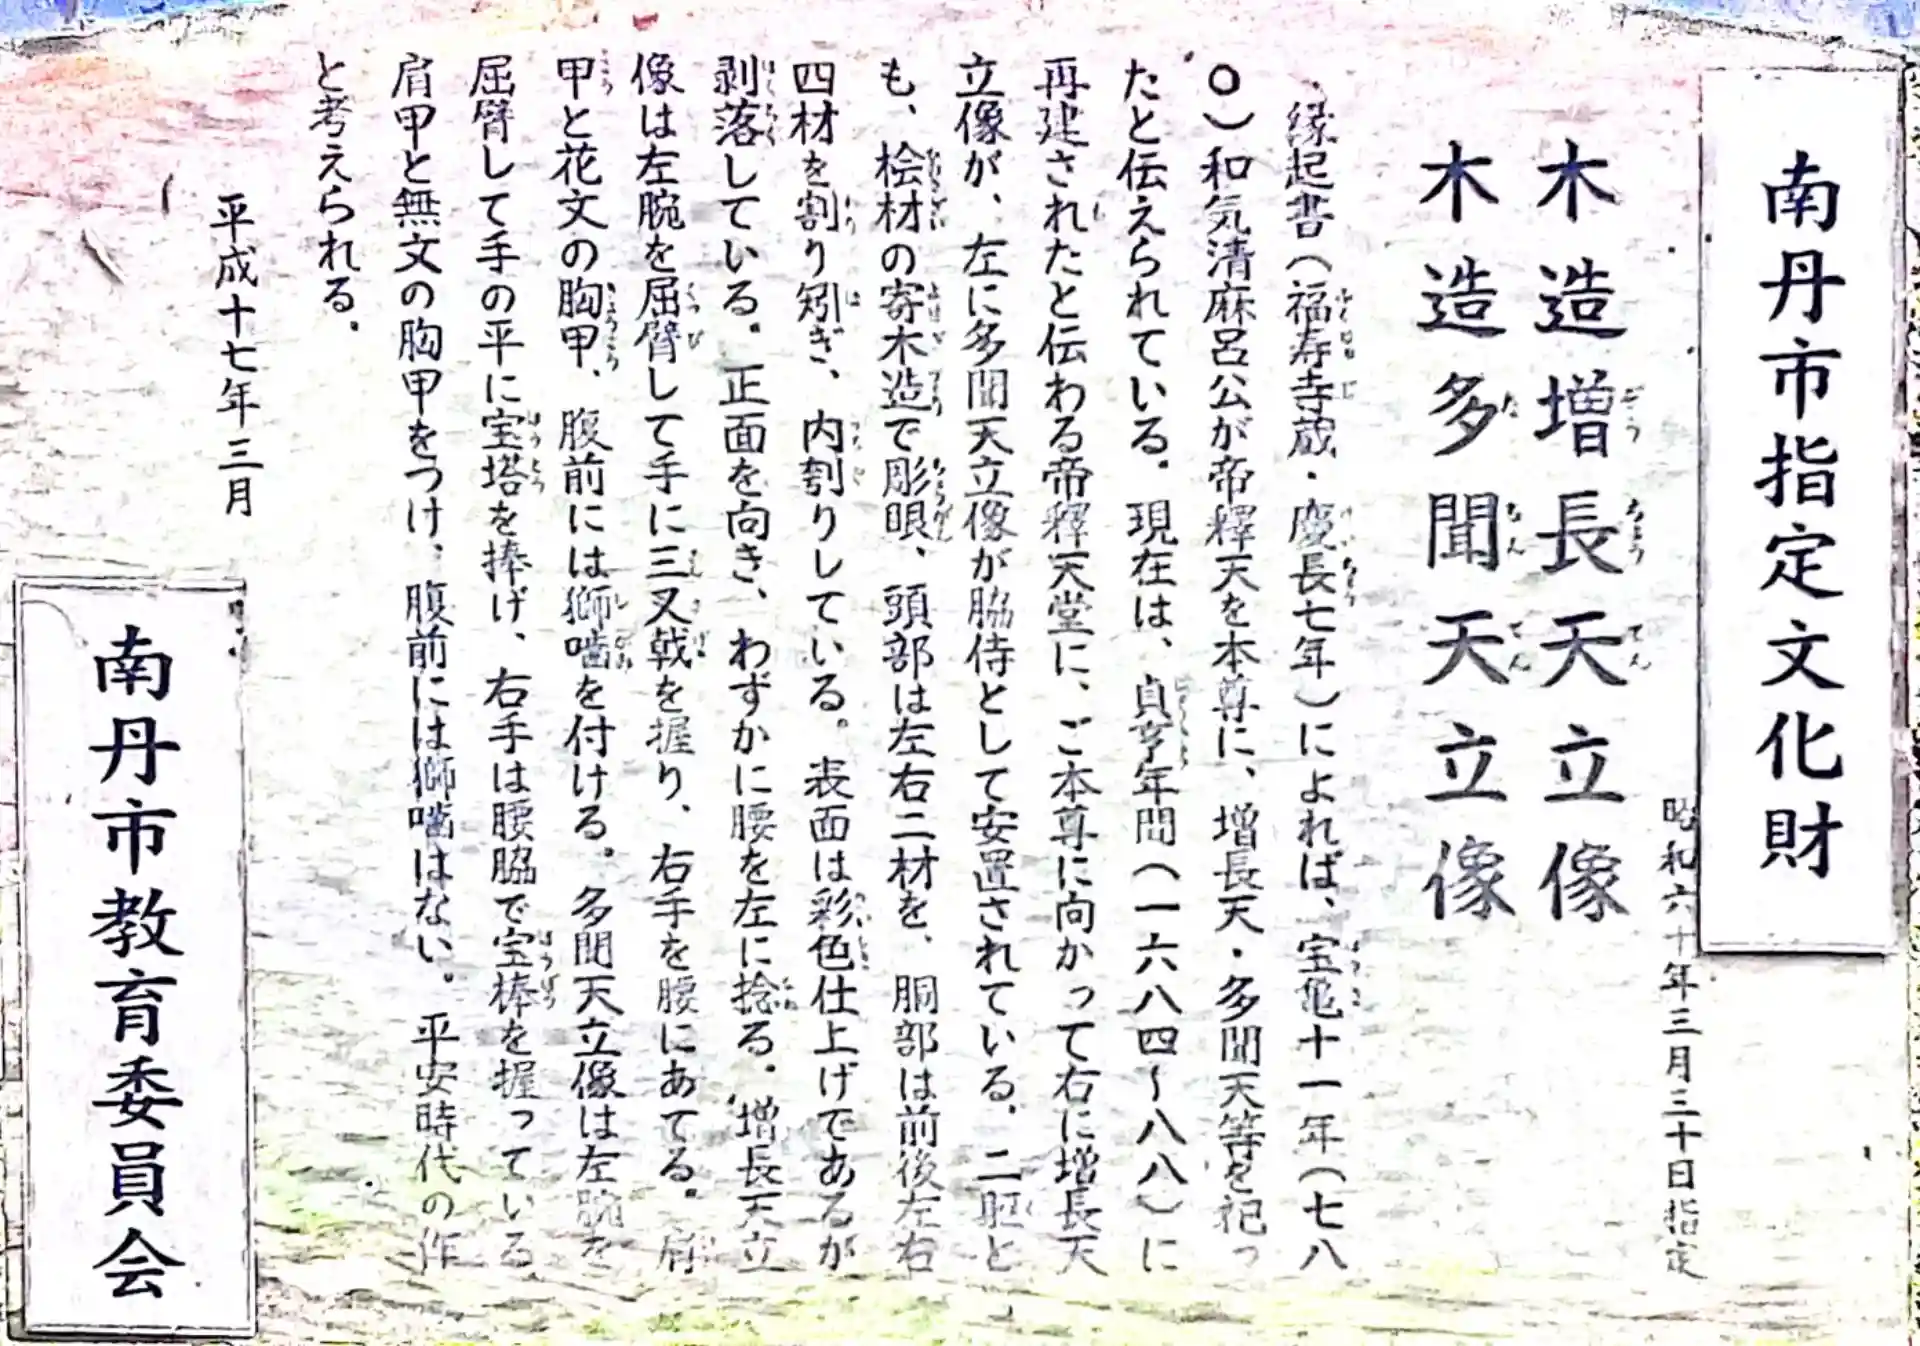 南丹市指定文化財
昭和六十年三月三十日指定
木造増長天立像
木造多聞天立像
縁起書（福寿寺蔵・慶長七年）によれば、宝亀十一年（七八
〇）和気清麻呂公が帝釋天を本尊に、増長天・多聞天等を祀っ
たと伝えられている。現在は、貞享年間（一六八四～八八）に
再建されたと伝わる帝釋天堂に、ご本尊に向かって右に増長天
立像が、左に多聞天立像が脇侍として安置されている。二躯と
も、桧材の寄木造で彫眼、頭部は左右二材を、胴部は前後左右
四材を割り矧ぎ、内割りしている。表面は彩色仕上げであるが
剥落している。正面を向き、わずかに腰を左に捻る。増長天立
像は左腕を屈臂して手に三叉戟を握り、右手を腰にあてる。肩
甲と花文の胸甲、腹前には獅噛を付ける。多聞天立像は左腕を
屈臂して手の平に宝塔を捧げ、右手は腰脇で宝棒を握っている
肩甲と無文の胸甲をつけ、腹前には獅噛はない。平安時代の作
と考えられる。
平成十七年三月
南丹市教育委員会